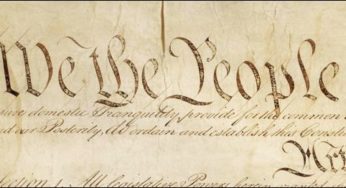 We the People
insure domestic Tranquility, provide for the common
and our Posterity, do ordain and establish this Consti
Section. 1. All legislative Powers herein granted